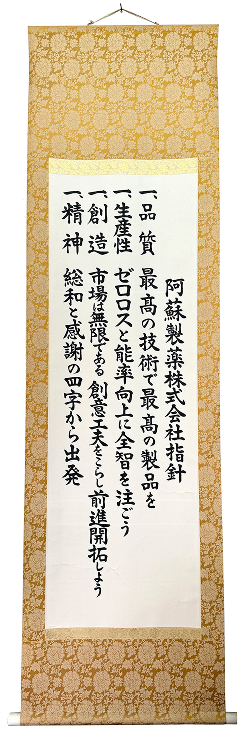 阿蘇製薬株式会社指針
一、品質 最高の技術で最高の製品を
一、生産性 ゼロロスと能率向上に全智を注ごう
一、創造 市場は無限である 創意工夫をこらし前進開拓しよう
一、精神 総和と感謝の四字から出発